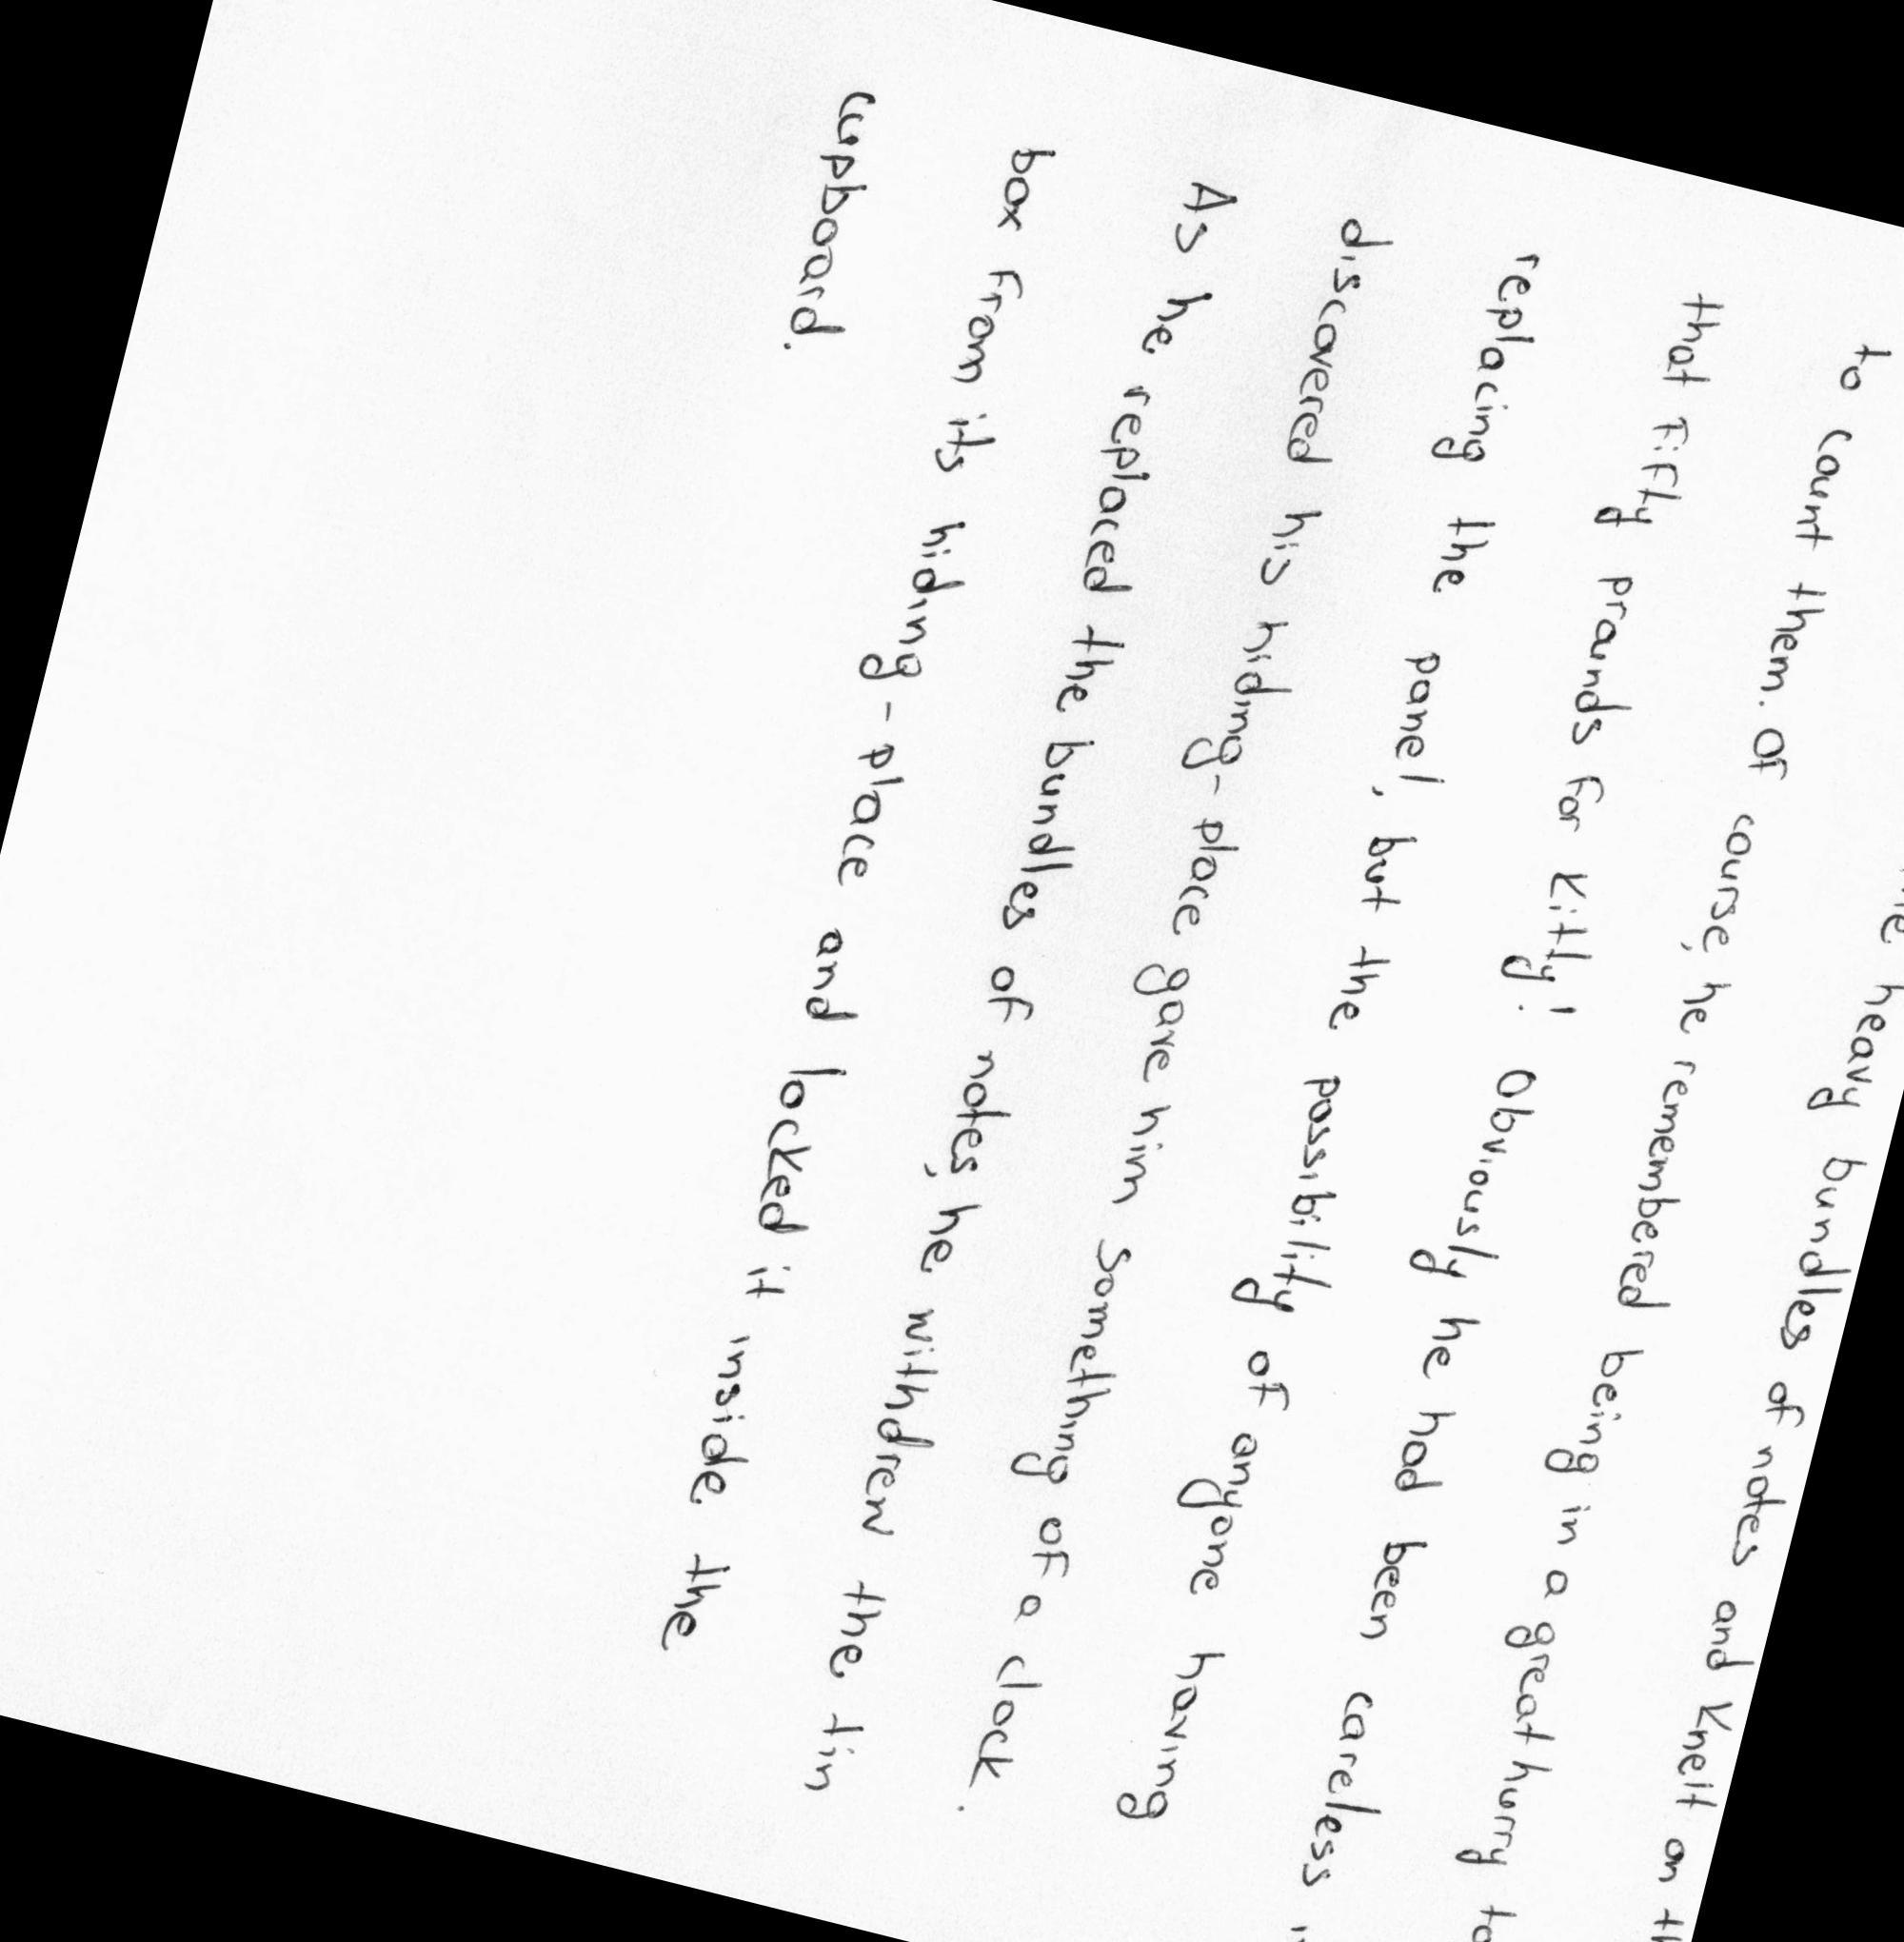 heavy bundles of notes and knelt on
to count them. Of course, he remembered being in a great hurry to
that fifty prounds for Kitty! Obviously he had been careless
replacing the panel, but the possibility of anyone having
discovered his hiding-place gave him something of a clock.
As he replaced the bundles of notes, he withdrew the tin
box from its hiding-place and locked it inside the
cupboard.